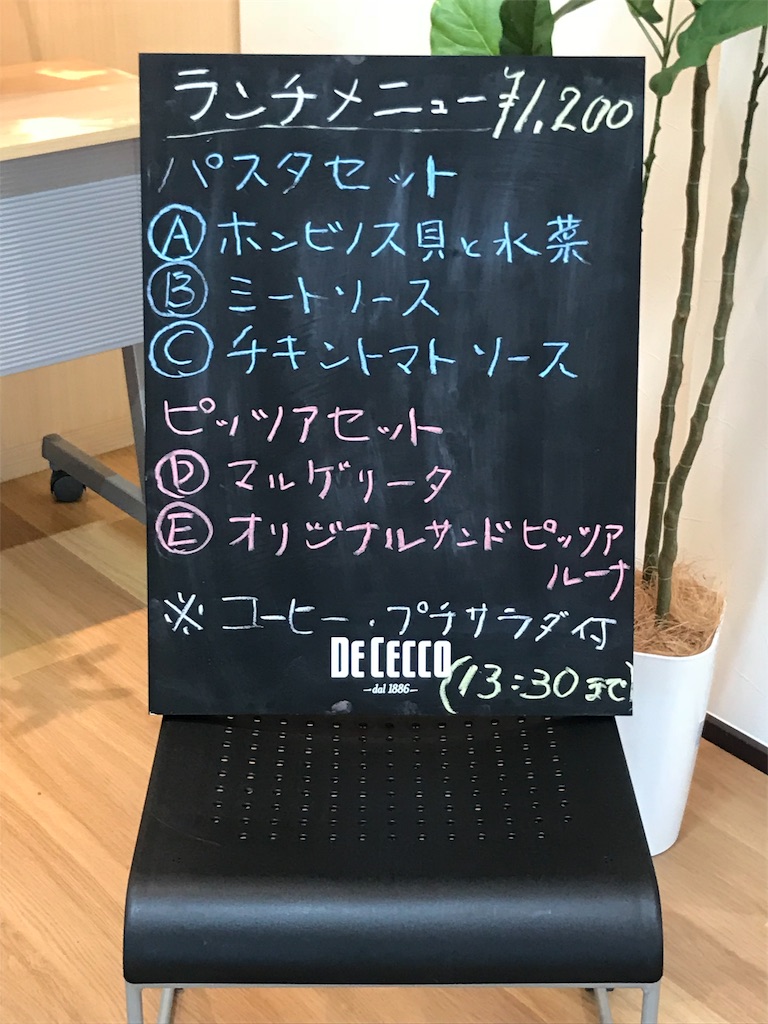 ランチメニュー ¥1,200
パスタセット
Ⓐ ホンビノス貝と水菜
Ⓑ ミートソース
Ⓒ チキントマトソース
ピッツァセット
Ⓓ マルゲリータ
Ⓔ オリジナルサンドピッツァ
ルーナ
※ コーヒー・プチサラダ付
DE CECCO
dal 1886
(13:30まで)